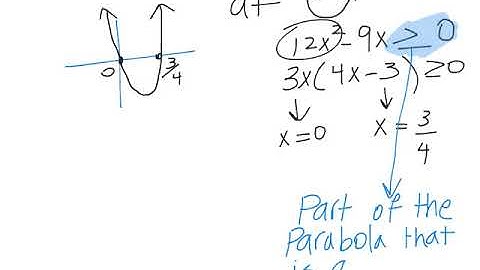 at
12x² - 9x ≥ 0
3x(4x - 3) ≥ 0
x = 0
x = 3/4
0
3/4
Part of the
Parabola that
is